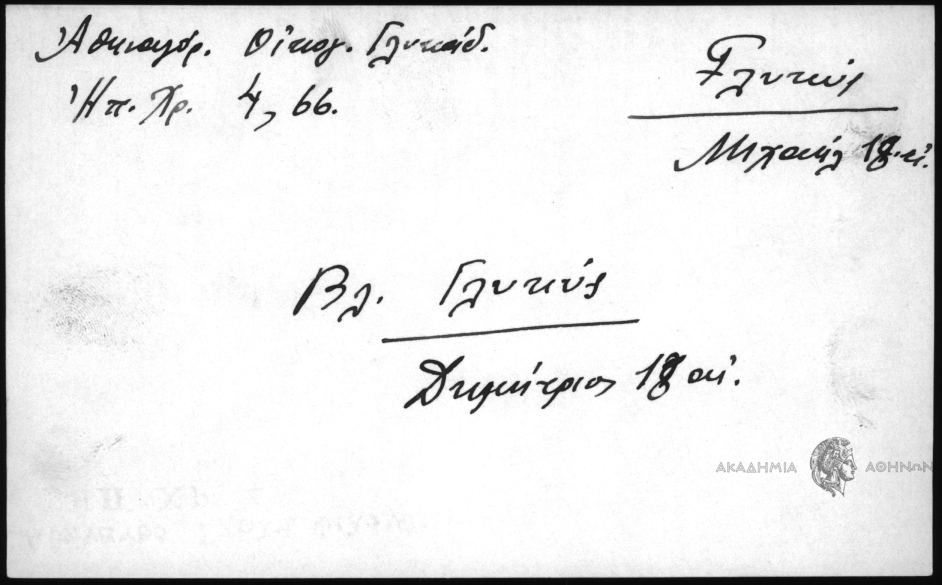 Ἀθηναγόρ. Οἰκογ. Γλυκάδ.
Ἠπ. Χρ. 4, 66.
Γλυκύς
Μιχαήλ 18. αἰ.
Βλ. Γλυκύς
Δημήτριος 18 αἰ.
ΑΚΑΔΗΜΙΑ ΑΘΗΝΩΝ